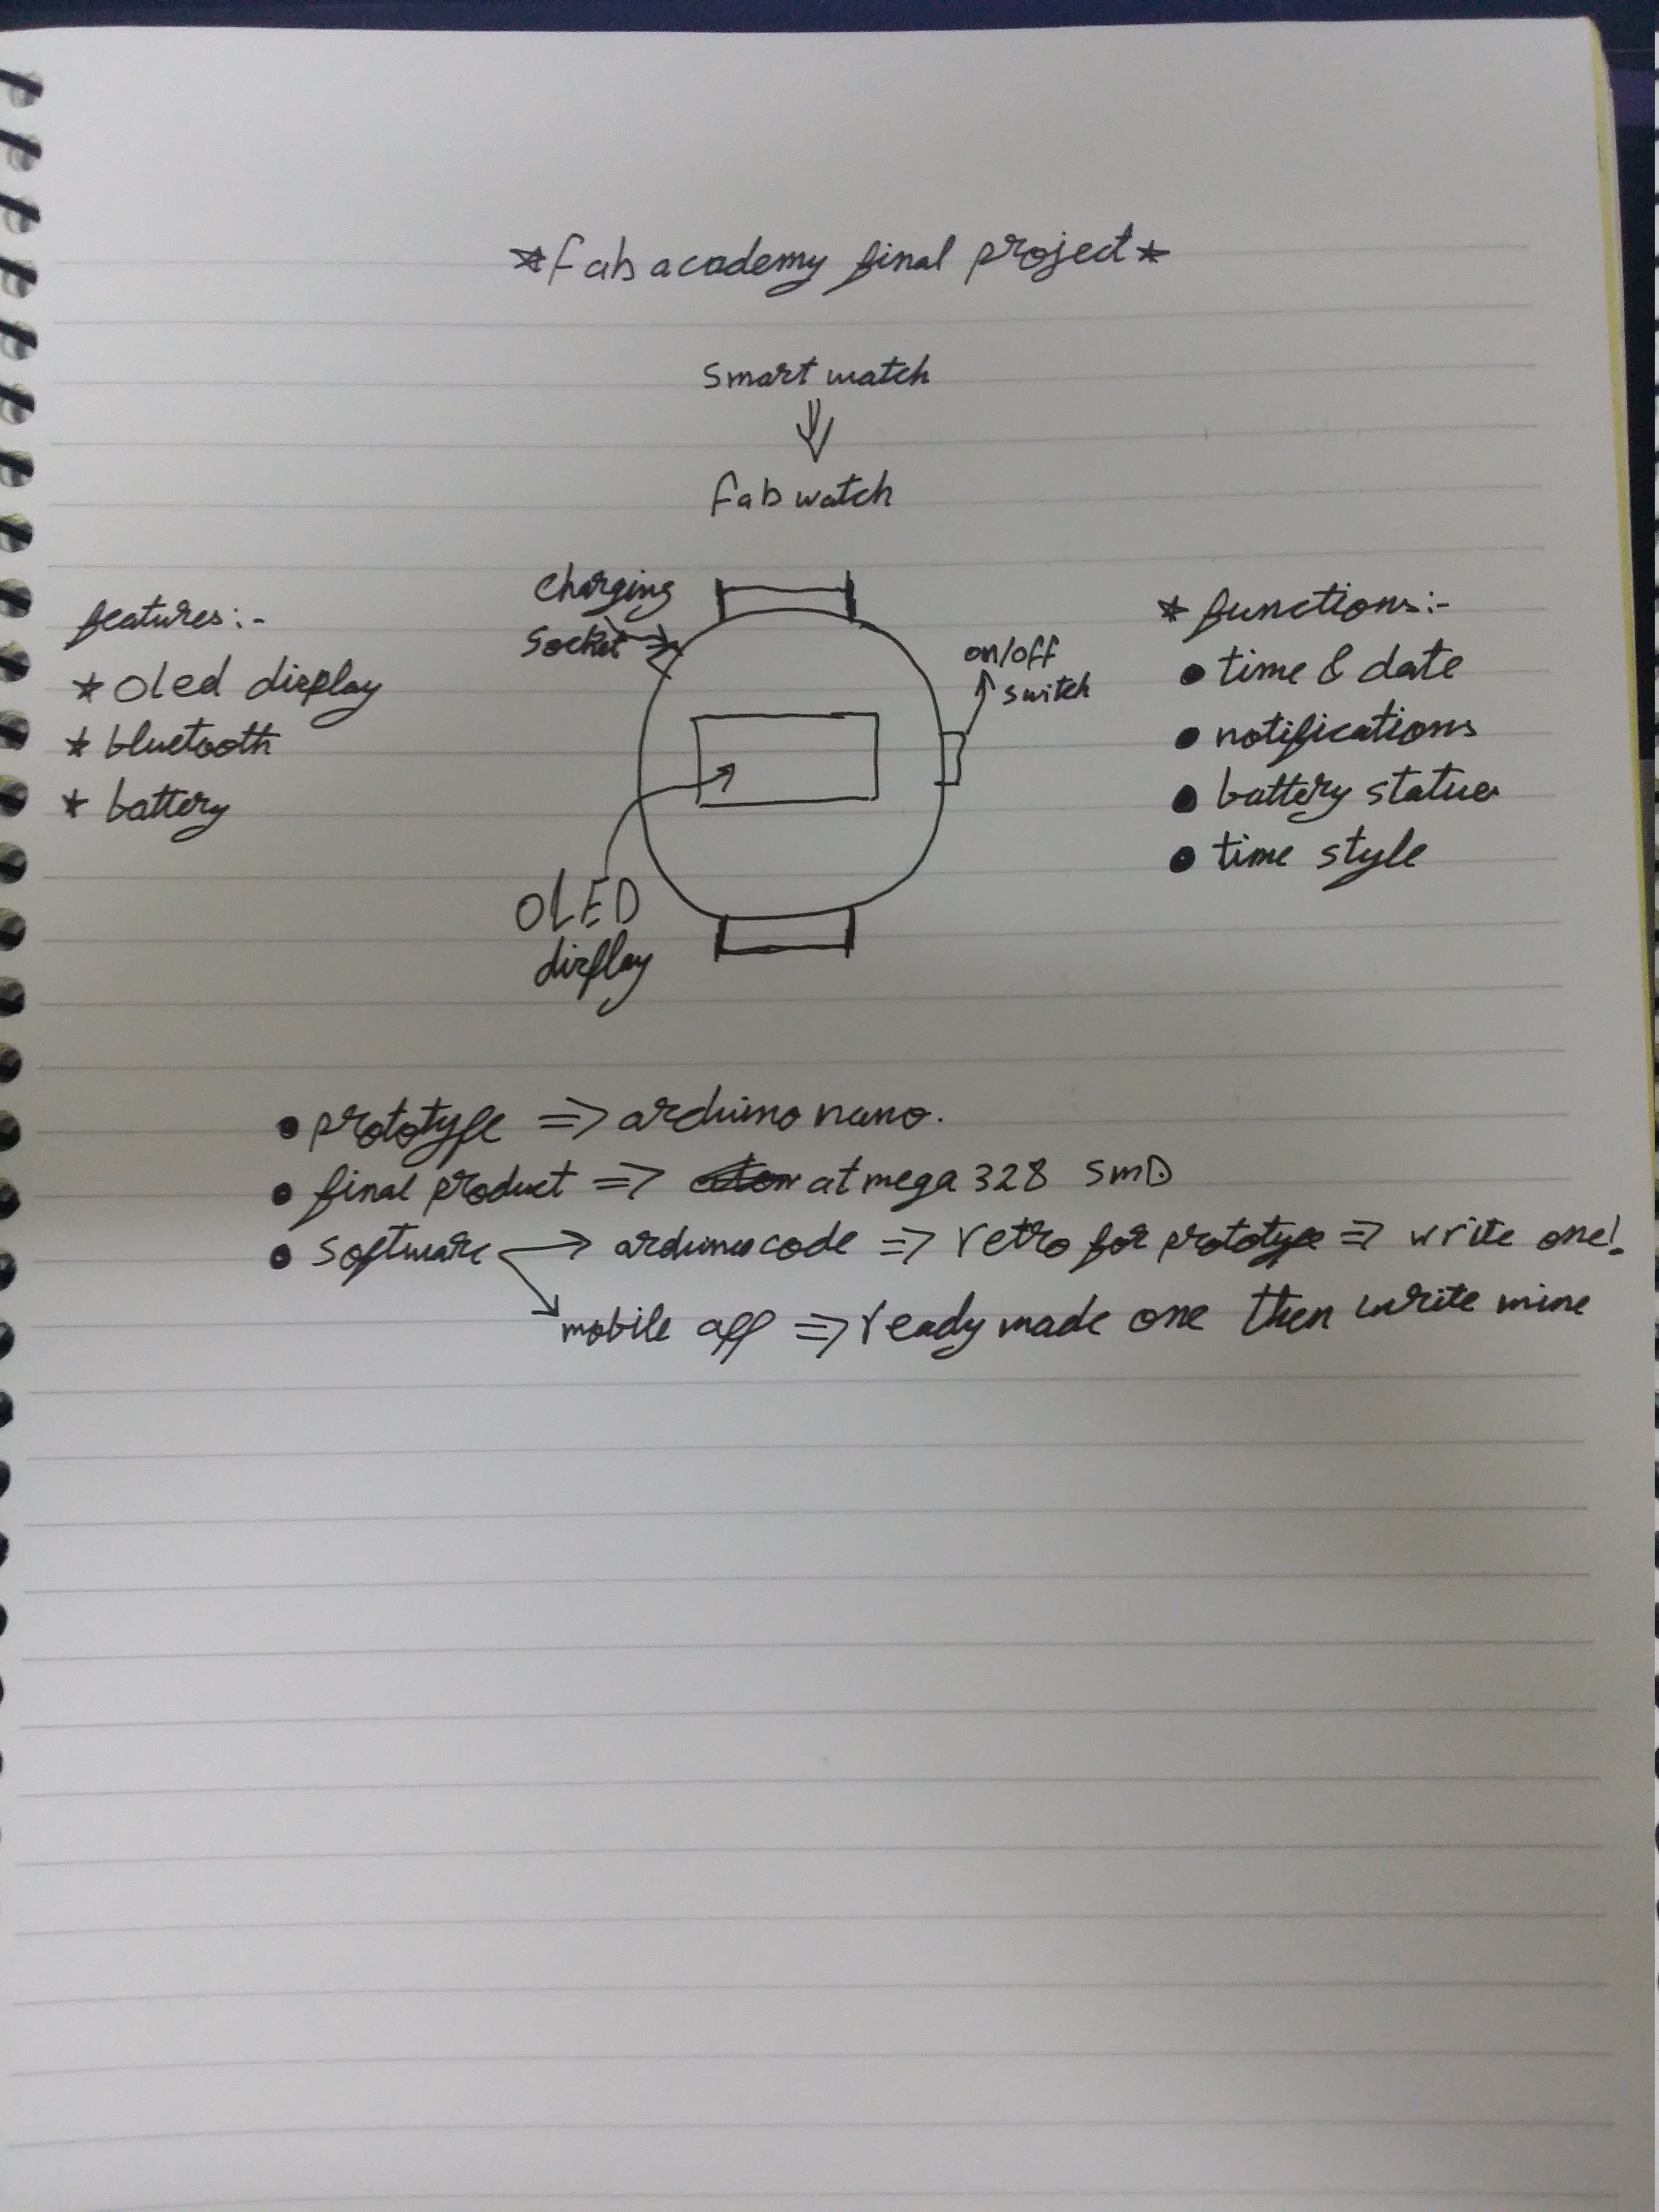 *fab academy final project*
smart watch
fab watch
features:-
* oled display
* bluetooth
* battery
charging
socket
on/off
switch
OLED
display
* functions:-
• time & date
• notifications
• battery status
• time style
• prototype => arduino nano.
• final product => atmega 328 SMD
• software → arduino code => retro for prototype => write one!
mobile app => ready made one then write mine